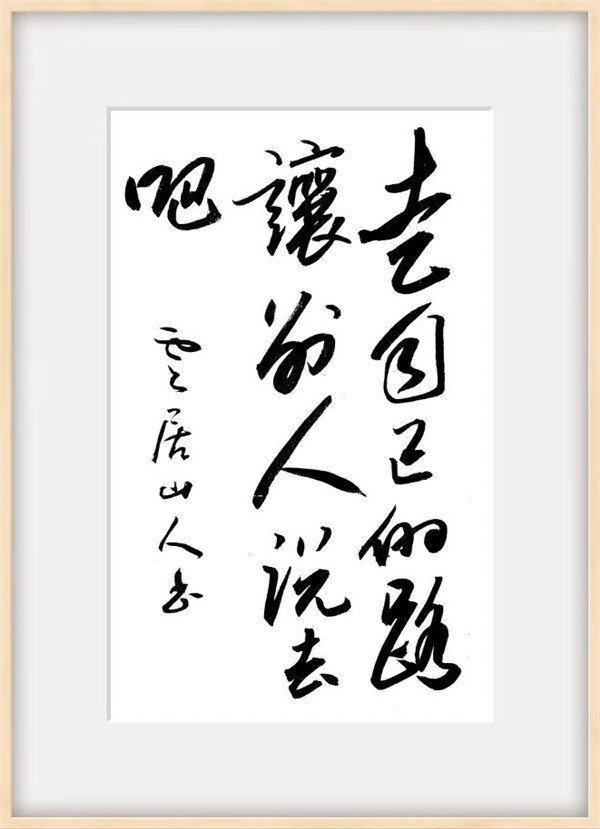 走自己的路
讓別人說去
吧
雲居山人书